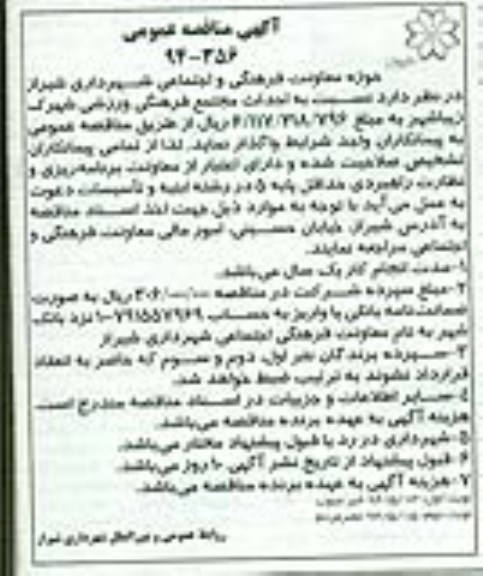 آگهی مناقصه عمومی
۹۴-۳۵۶
حوزه معاونت فرهنگی و اجتماعی شهرداری شیراز
در نظر دارد نسبت به احداث مجتمع فرهنگی ورزشی شهرک
زیباشهر به مبلغ ۶/۱۱۷/۳۱۸/۷۹۶ ریال از طریق مناقصه عمومی
به پیمانکاران واجد شرایط واگذار نماید. لذا از تمامی پیمانکاران
تشخیص صلاحیت شده و دارای اعتبار از معاونت برنامه‌ریزی و
نظارت راهبردی حداقل پایه ۵ در رشته ابنیه و تأسیسات دعوت
به عمل می‌آید با توجه به موارد ذیل جهت اخذ اسناد مناقصه
به آدرس شیراز، خیابان حسینی، امور مالی معاونت فرهنگی و
اجتماعی مراجعه نمایند.
۱-مدت انجام کار یک سال می‌باشد.
۲-مبلغ سپرده شرکت در مناقصه ۳۰۶/۰۰۰/۰۰۰ ریال به صورت
ضمانت‌نامه بانکی یا واریز به حساب ۱۰۰۷۹۱۵۵۷۹۶۹ نزد بانک
شهر به نام معاونت فرهنگی اجتماعی شهرداری شیراز
۳-سپرده برندگان نفر اول، دوم و سوم که حاضر به انعقاد
قرارداد نشوند به ترتیب ضبط خواهد شد.
۴-سایر اطلاعات و جزییات در اسناد مناقصه مندرج است.
هزینه آگهی به عهده برنده مناقصه می‌باشد.
۵-شهرداری در رد یا قبول پیشنهاد مختار می‌باشد.
۶-قبول پیشنهاد از تاریخ نشر آگهی ۱۰ روز می‌باشد.
۷-هزینه آگهی به عهده برنده مناقصه می‌باشد.
روابط عمومی و بین‌الملل شهرداری شیراز